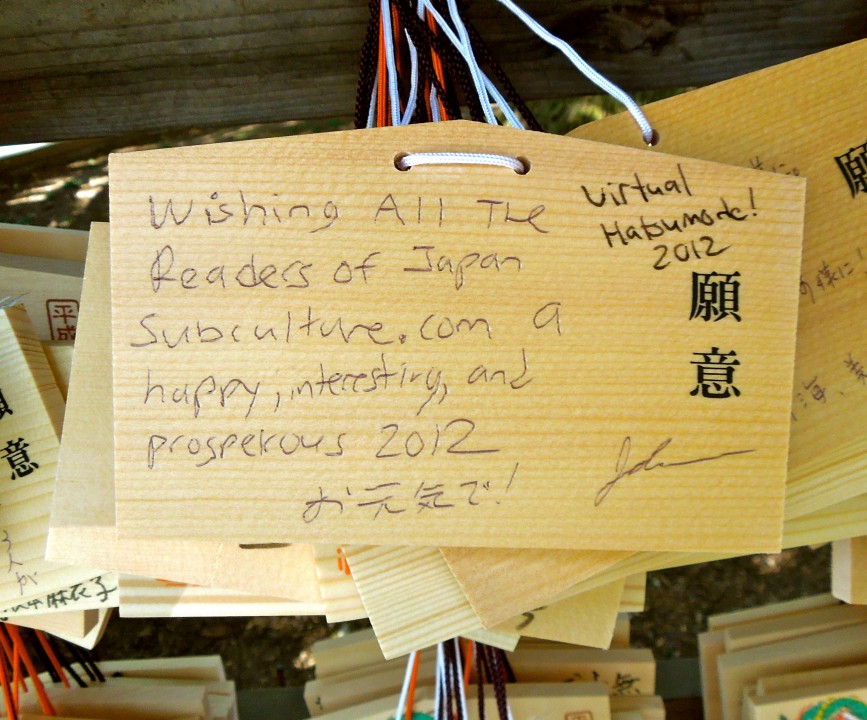 Wishing All The
Readers of Japan
Subculture.com a
happy, interesting, and
prosperous 2012
お元気で!
Virtual
Hatsumode!
2012
願
意
願
意
平
成